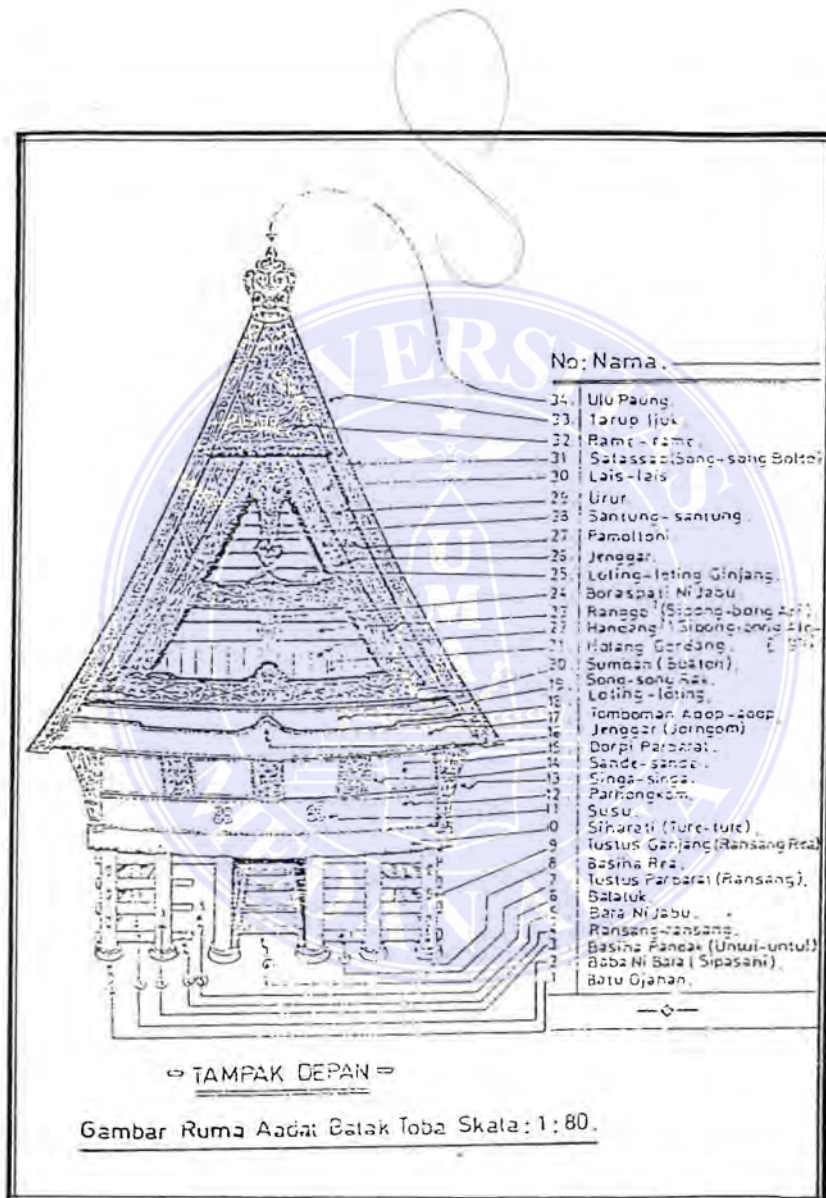 No: Nama.
34. Ulu Paung.
33. Tarup Ijuk
32 Rame-rame.
31
30 Lais-lais
29 Urur
28 Santung-santung.
27 Pamoltoni
26 Jenggar.
25. Loting-loting Ginjang.
24 Boraspati Ni Jabu
23
22
21 Halang Gordang.
20 Sumban (
19 Song-song
18 Loting-loting.
17 Tomboman Adop-adop
16 Jenggar (Jorngom)
15 Dorpi Parbarat.
14 Sande-sande.
13 Singa-singa.
12 Parhongkom.
11 Susu.
10 Siharati (Ture-ture).
9 Tustus Ganjang (Ransang Rea)
8 Basiha Rea.
7 Tustus Parbarat (Ransang).
6 Balatuk.
5 Bara Ni Jabu.
4 Ransang-ransang.
3 Basiha Pandak (Untul-untul)
2 Baba Ni Bara (Sipasahi).
1 Batu Ojahan.
TAMPAK DEPAN
Gambar Ruma Aadat Batak Toba Skala: 1:80.
UNIVERSITAS
UMA
MEDAN AREA